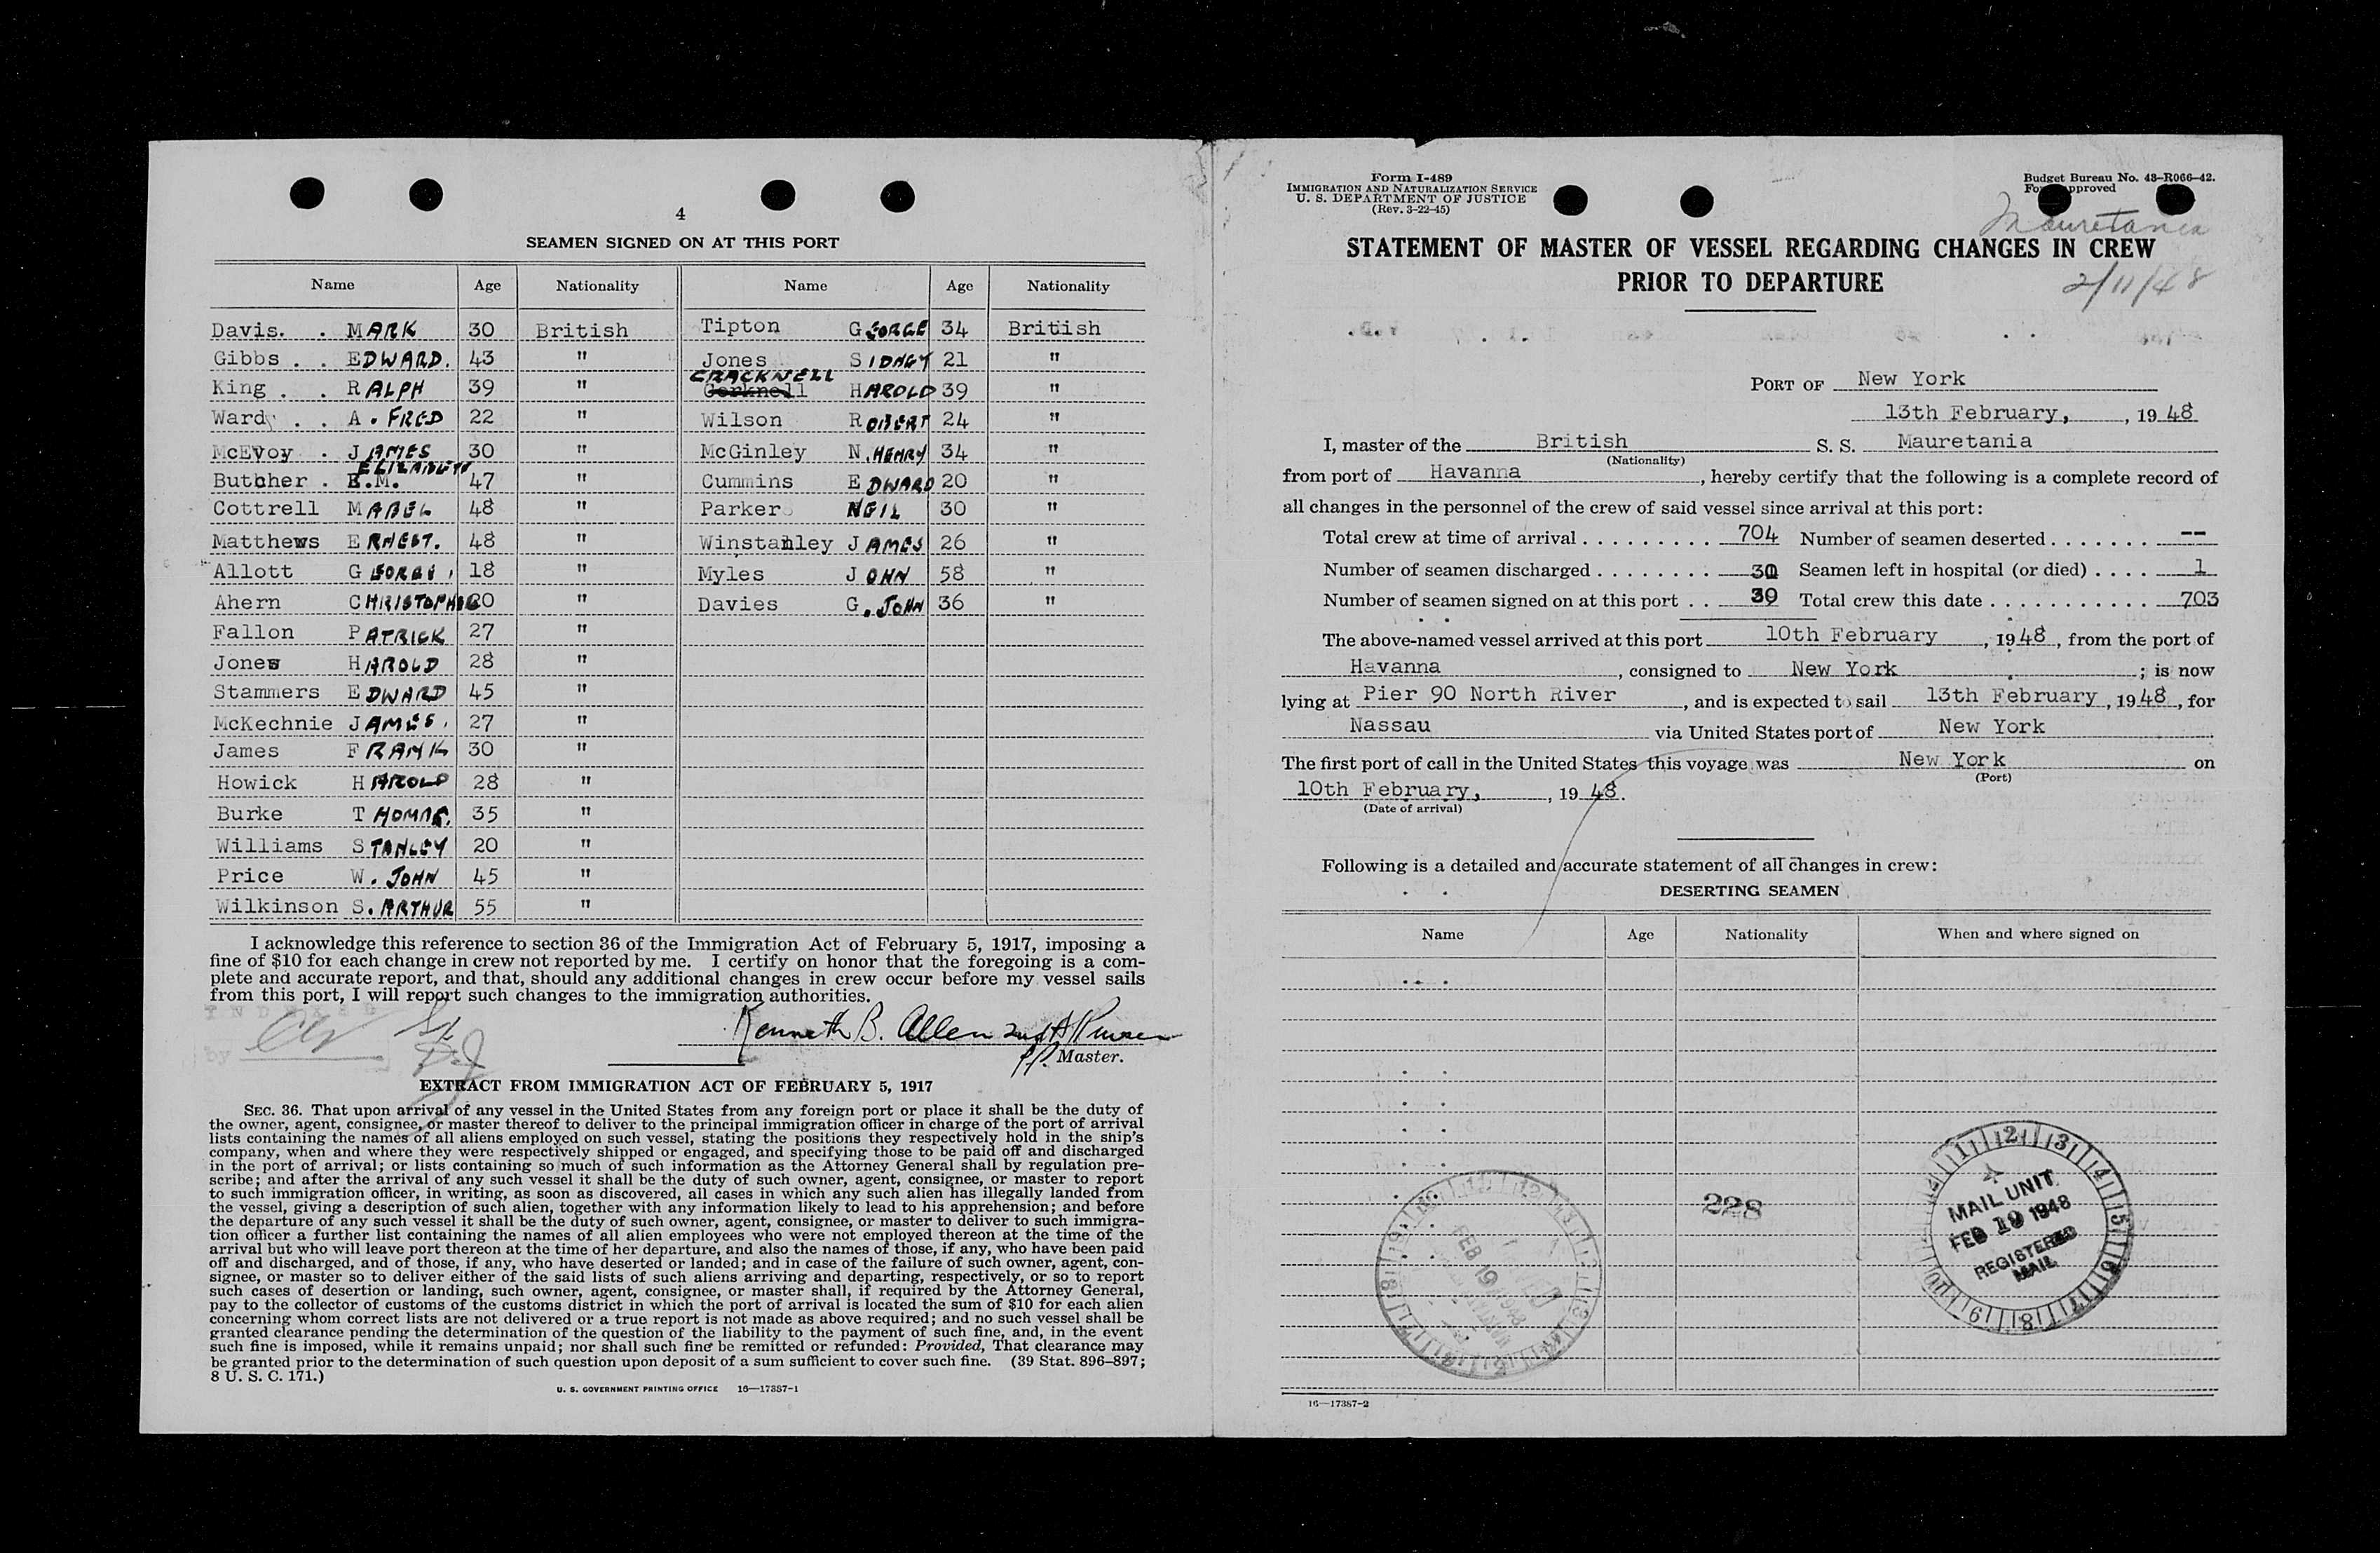 4
SEAMEN SIGNED ON AT THIS PORT
Name Age Nationality Name Age Nationality
Davis. . MARK 30 British Tipton GEORGE 34 British
Gibbs . . EDWARD. 43 " Jones SIDNEY 21 "
CRACKNELL
King . . RALPH 39 " HAROLD 39 "
Ward . . A. FRED 22 " Wilson ROBERT 24 "
McEvoy . JAMES 30 " McGinley N. HENRY 34 "
ELIZABETH
Butcher . E.M. 47 " Cummins EDWARD 20 "
Cottrell MABEL 48 " Parker NEIL 30 "
Matthews ERNEST. 48 " Winstanley JAMES 26 "
Allott GEORGE, 18 " Myles JOHN 58 "
Ahern CHRISTOPHER " Davies G. JOHN 36 "
Fallon PATRICK 27 "
Jones HAROLD 28 "
Stammers EDWARD 45 "
McKechnie JAMES. 27 "
James FRANK 30 "
Howick HAROLD 28 "
Burke THOMAS. 35 "
Williams STANLEY 20 "
Price W. JOHN 45 "
Wilkinson S. ARTHUR 55 "
I acknowledge this reference to section 36 of the Immigration Act of February 5, 1917, imposing a
fine of $10 for each change in crew not reported by me. I certify on honor that the foregoing is a com-
plete and accurate report, and that, should any additional changes in crew occur before my vessel sails
from this port, I will report such changes to the immigration authorities.
INDEXED
by
Kenneth B. Allen 2nd A/Purser
pp. Master.
EXTRACT FROM IMMIGRATION ACT OF FEBRUARY 5, 1917
SEC. 36. That upon arrival of any vessel in the United States from any foreign port or place it shall be the duty of
the owner, agent, consignee, or master thereof to deliver to the principal immigration officer in charge of the port of arrival
lists containing the names of all aliens employed on such vessel, stating the positions they respectively hold in the ship's
company, when and where they were respectively shipped or engaged, and specifying those to be paid off and discharged
in the port of arrival; or lists containing so much of such information as the Attorney General shall by regulation pre-
scribe; and after the arrival of any such vessel it shall be the duty of such owner, agent, consignee, or master to report
to such immigration officer, in writing, as soon as discovered, all cases in which any such alien has illegally landed from
the vessel, giving a description of such alien, together with any information likely to lead to his apprehension; and before
the departure of any such vessel it shall be the duty of such owner, agent, consignee, or master to deliver to such immigra-
tion officer a further list containing the names of all alien employees who were not employed thereon at the time of the
arrival but who will leave port thereon at the time of her departure, and also the names of those, if any, who have been paid
off and discharged, and of those, if any, who have deserted or landed; and in case of the failure of such owner, agent, con-
signee, or master so to deliver either of the said lists of such aliens arriving and departing, respectively, or so to report
such cases of desertion or landing, such owner, agent, consignee, or master shall, if required by the Attorney General,
pay to the collector of customs of the customs district in which the port of arrival is located the sum of $10 for each alien
concerning whom correct lists are not delivered or a true report is not made as above required; and no such vessel shall be
granted clearance pending the determination of the question of the liability to the payment of such fine, and, in the event
such fine is imposed, while it remains unpaid; nor shall such fine be remitted or refunded: Provided, That clearance may
be granted prior to the determination of such question upon deposit of a sum sufficient to cover such fine. (39 Stat. 896-897;
8 U. S. C. 171.)
U. S. GOVERNMENT PRINTING OFFICE 16—17387-1
Form I-489
IMMIGRATION AND NATURALIZATION SERVICE
U. S. DEPARTMENT OF JUSTICE
(Rev. 3-22-45)
Budget Bureau No. 43-R066-42.
Mauretania
STATEMENT OF MASTER OF VESSEL REGARDING CHANGES IN CREW
PRIOR TO DEPARTURE
2/11/48
PORT OF New York
13th February, , 19 48
I, master of the British S. S. Mauretania
(Nationality)
from port of Havanna , hereby certify that the following is a complete record of
all changes in the personnel of the crew of said vessel since arrival at this port:
Total crew at time of arrival . . . . . . . . . . 704 Number of seamen deserted . . . . . . . --
Number of seamen discharged . . . . . . . . Seamen left in hospital (or died) . . . . 1
Number of seamen signed on at this port . . Total crew this date . . . . . . . . . . . 703
The above-named vessel arrived at this port 10th February , 19 48 , from the port of
Havanna , consigned to New York ; is now
lying at Pier 90 North River , and is expected to sail 13th February , 19 48 , for
Nassau via United States port of New York
The first port of call in the United States this voyage was New York on
(Port)
10th February, , 19 48.
(Date of arrival)
Following is a detailed and accurate statement of all changes in crew:
DESERTING SEAMEN
Name Age Nationality When and where signed on
228
MAIL UNIT
FEB 19 1948
REGISTERED
MAIL
FEB 19 1948
16—17387-2